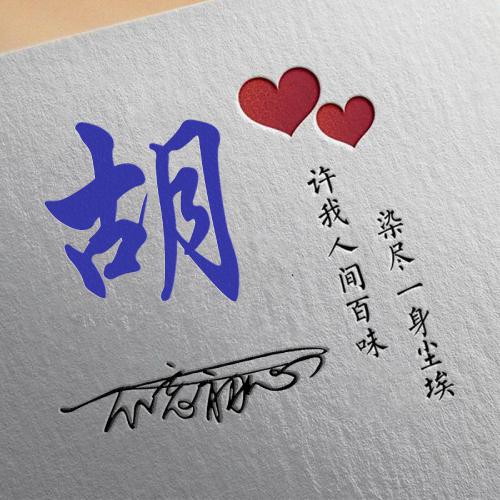 胡
染尽一身尘埃
许我人间百味